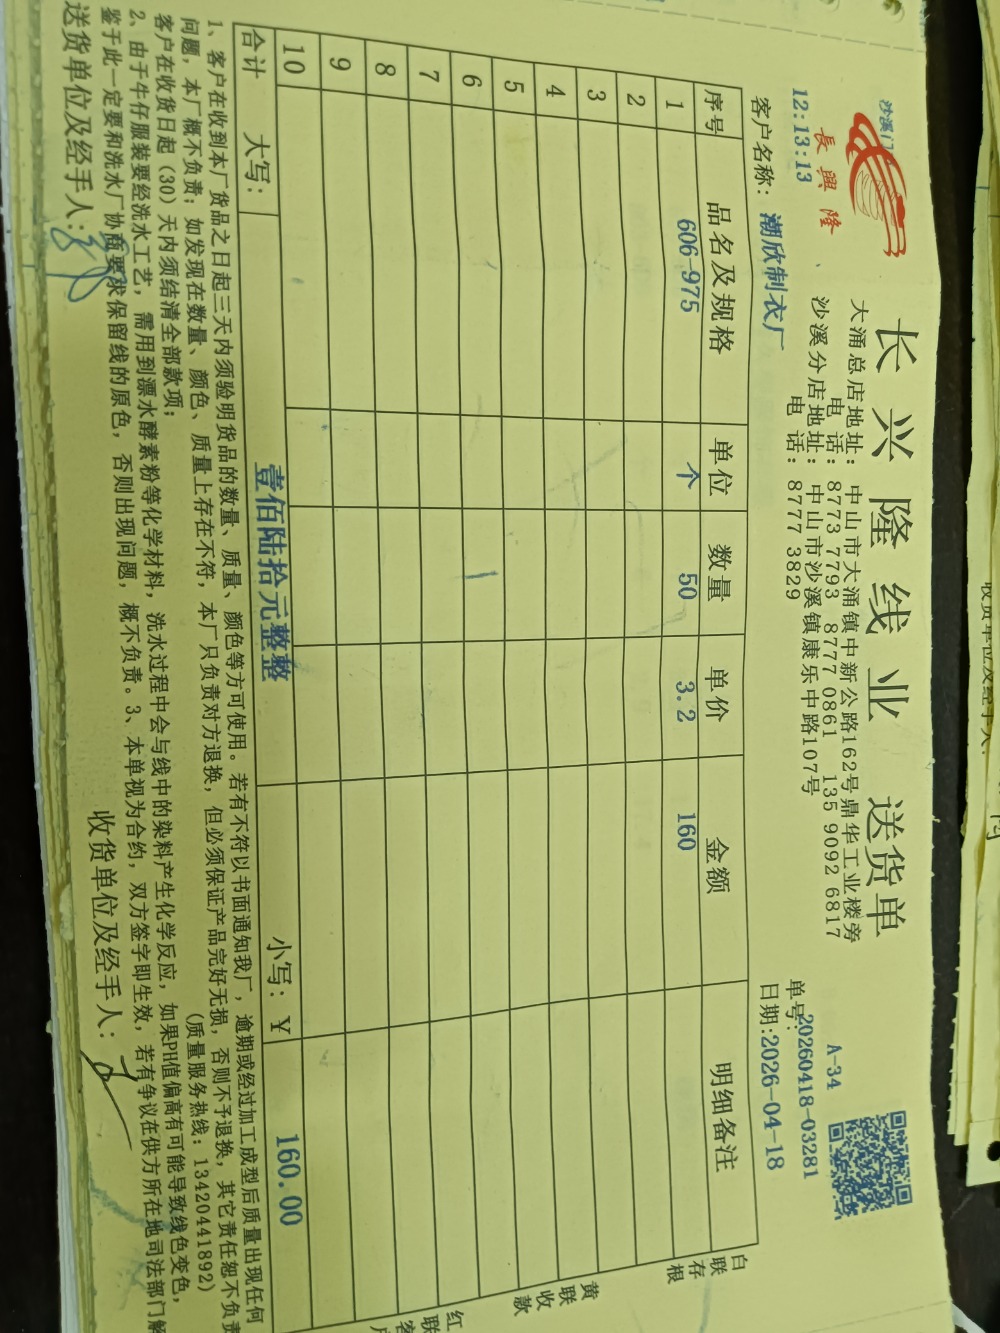 沙溪门
長興隆
12:13:13
长兴隆线业 送货单
大涌总店地址: 中山市大涌镇中新公路162号鼎华工业楼旁
电 话: 8773 7793 8777 0861 135 9092 6817
沙溪分店地址: 中山市沙溪镇康乐中路107号
电 话: 8777 3829
A-34
单号:20260418-03281
客户名称: 潮欣制衣厂
日期:2026-04-18
序号 品名及规格 单位 数量 单价 金额 明细备注
1 606-975 个 50 3.2 160
2
3
4
5
6
7
8
9
10
合计 大写: 壹佰陆拾元整整 小写: ¥ 160.00
白联存根
黄联收款
红联客
1、客户在收到本厂货品之日起三天内须验明货品的数量、质量、颜色等方可使用。若有不符以书面通知我厂,逾期或经过加工成型后质量出现任何
问题,本厂概不负责;如发现在数量、颜色、质量上存在不符,本厂只负责对方退换,但必须保证产品完好无损,否则不予退换,其它责任恕不负责
客户在收货日起(30)天内须结清全部款项; (质量服务热线:13420441892)
2、由于牛仔服装要经洗水工艺,需用到漂水酵素粉等化学材料,洗水过程中会与线中的染料产生化学反应,如果PH值偏高有可能导致线色变色,
鉴于此一定要和洗水厂协商要求保留线的原色,否则出现问题,概不负责。3、本单视为合约,双方签字即生效,若有争议在供方所在地司法部门解
送货单位及经手人: 收货单位及经手人:
收货单位及经手人: